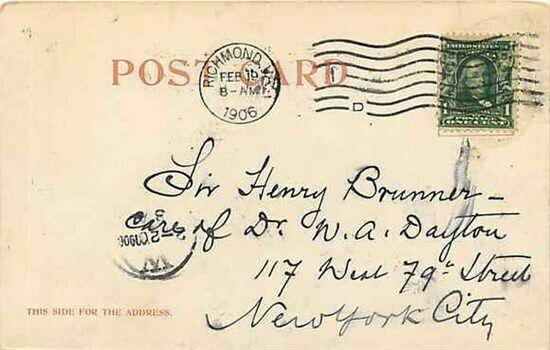 POST CARD
RICHMOND, VA.
FEB 19
8-AM
1906
D
UNITED STATES
Sir Henry Brunner -
care of Dr. W. A. Dayton
117 West 79th Street
New York City
THIS SIDE FOR THE ADDRESS.